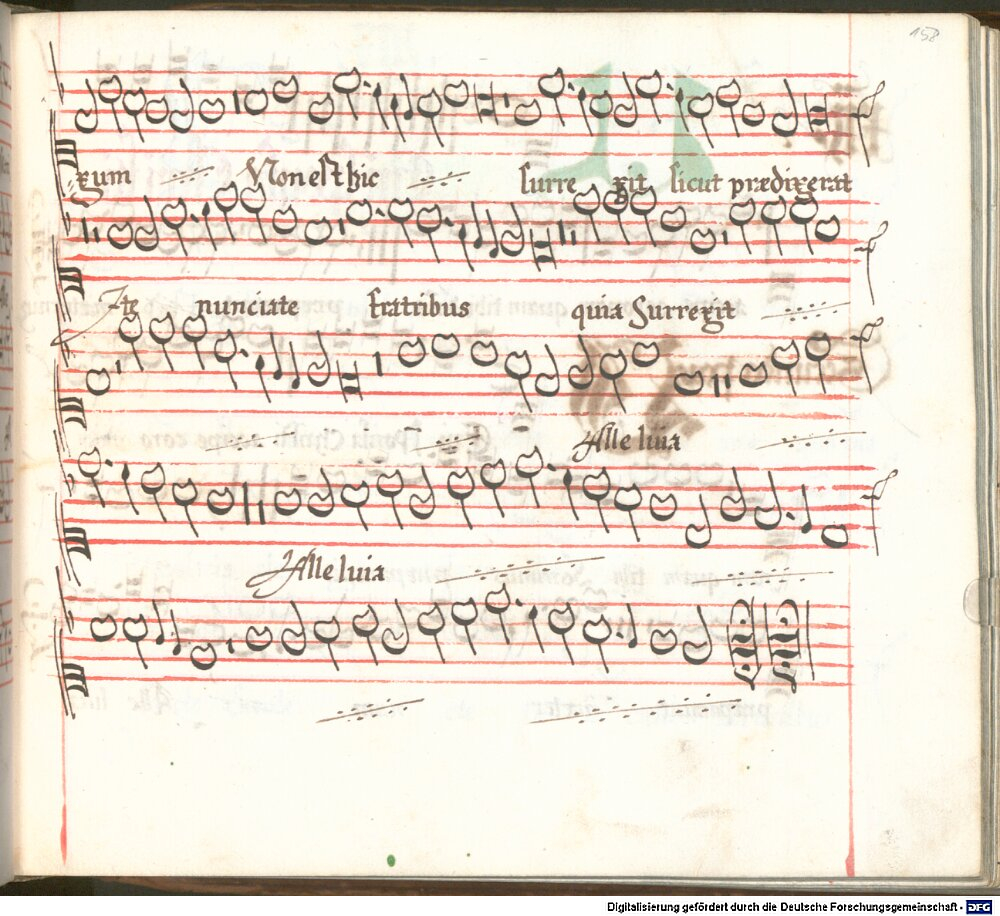 158
xum Non est hic surre xit sicut prædixerat
Ite nunciate fratribus quia Surrexit
Alleluia
Alleluia
Digitalisierung gefördert durch die Deutsche Forschungsgemeinschaft - DFG